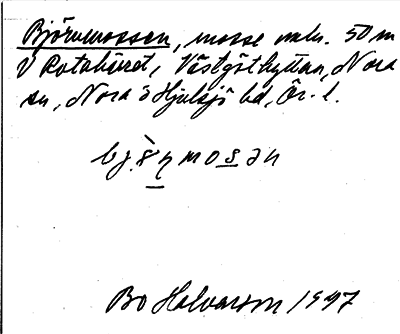 Björnmossen, mosse omkr. 50 m
V Rotabäret, Västgöthyttan, Nora
sn, Nora o Hjulsjö bd, Ör. l.
bjö̀ṇmosən
Bo Halvarson 1947